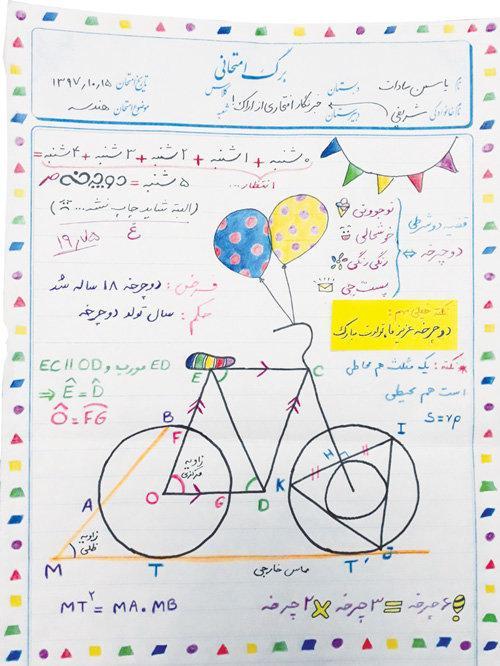 برگ امتحانی
نام یاسمن سادات
نام خانوادگی شریفی
دبستان
دبیرستان
خبرنگار افتخاری از اراک!
کلاس
شعبه
تاریخ امتحان ۱۳۹۷,۱۰,۱۵
موضوع امتحان هندسه
۰شنبه + ۱شنبه + ۲شنبه + ۳شنبه + ۴شنبه =
انتظار...
۵شنبه = دوچرخه
(البته شاید چاپ نشد...)
۱۹٫۷۵
قضیه دوشرطی
دوچرخه ⇔
نوجوونی
خوشحالی
رنگی رنگی
پستچی
فرض: دوچرخه ۱۸ ساله شد
حکم: سال تولد دوچرخه
نکته خیلی مهم:
دوچرخه عزیز ما، تولدت مبارک
نکته: یک مثلث هم محاطی
است هم محیطی
S=rp
EC || OD و ED مورب
⇒ Ê = D̂
Ô = FG
E
C
B
F
I
H
زاویه مرکزی
A
O
G
D
K
زاویه ظلی
M
T
مماس خارجی
T'
J
MT² = MA.MB
۶چرخه = ۳چرخه × ۲چرخه